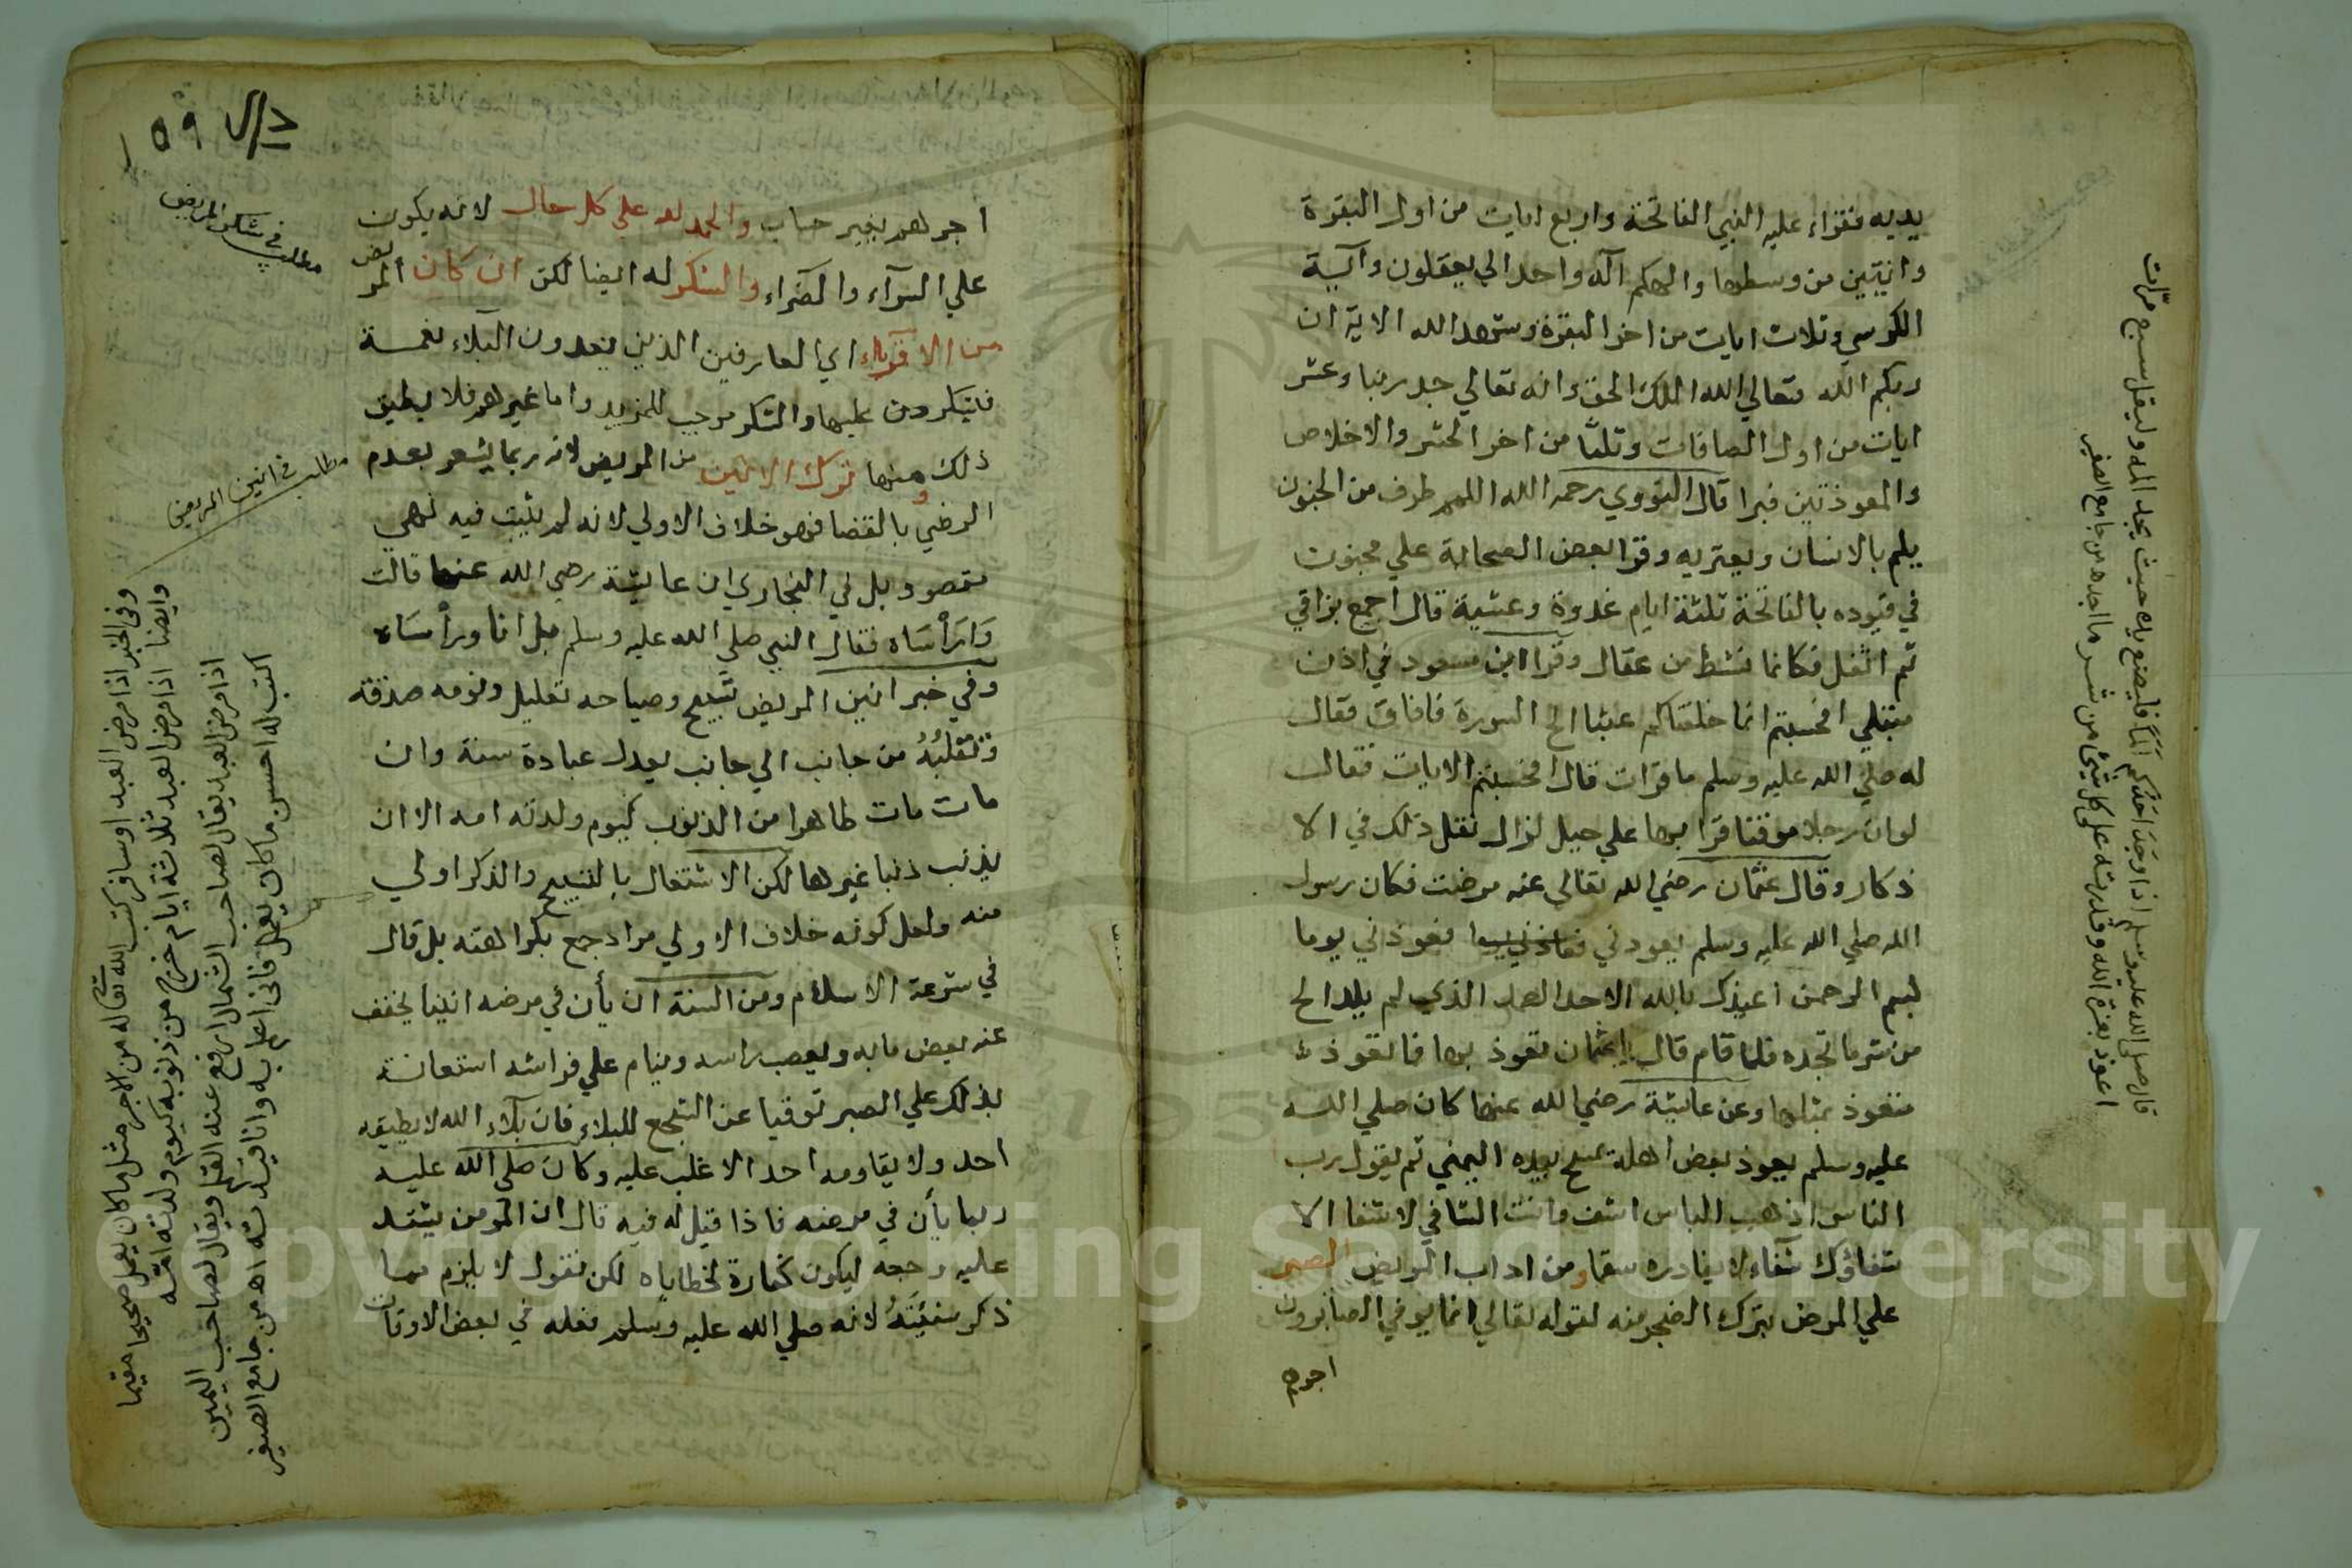 يديه فقراء عليه النبي الفاتحة واربع ايات من اول البقرة
واتيتين من وسطها والهكم اله واحد الي يعقلون وآية
الكرسي وثلاث ايات من اخر البقرة وشهد الله الاية ان
ربكم الله فتعالي الله الملك الحق وانه تعالي جد ربنا وعشر
ايات من اول الصافات وثلثا من اخر الحشر والاخلاص
والمعوذتين فبرا قال النووي رحمه الله اللمم طرف من الجنون
يلم بالانسان ويعتريه وقرا بعض الصحابة علي مجنون
في قيوده بالفاتحة ثلثة ايام غدوة وعشية قال اجمع بزاقي
ثم اتفل فكانما نشط من عقال وقرا ابن مسعود في اذن
مبتلي افحسبتم انما خلقناكم عبثا الخ السورة فافاق فقال
له صلي الله عليه وسلم ما قرات قال افحسبتم الايات فقال
لوان رجلا موقنا قرا بها علي جبل لزال نقل ذلك في الا
ذكار وقال عثمان رضي الله تعالي عنه مرضت فكان رسول
الله صلي الله عليه وسلم يعودني فعوذني يوما
بسم الرحمن اعيذك بالله الاحد الصمد الذي لم يلد الخ
من شر ما تجده فلما قام قال يا عثمان تعوذ بها فما تعوذ
متعوذ بمثلها وعن عايشة رضي الله عنها كان صلي الله
عليه وسلم يعوذ بعض اهله يمسح بيده اليمني ثم يقول رب
الناس اذهب الباس اشف وانت الشافي لا شفا الا
شفاؤك شفاء لا يغادره سقما ومن اداب المريض الصبر
علي المرض بترك الضجر منه لقوله تعالي انما يوفي الصابرون
اجرهم
قال صلى الله عليه وسلم اذا وجد احدكم الما فليضع يده حيث يجد المه وليقل سبع مرات
اعوذ بعزة الله وقدرته على كل شئ من شر ما اجد اهـ من جامع الصغير
٥٩
اجرهم بغير حساب والحمد لله علي كل حال لانه يكون
علي السرآء والضرآء والشكر له ايضا لكن ان كان المريض
من الاقوياء اي العارفين الذين يعدون البلاء نعمة
فيشكرون عليها والشكر موجب للمزيد واما غيرهم فلا يطيق
ذلك ومنها ترك الانين من المريض لانه ربما يشعر بعدم
الرضي بالقضا فهو خلاف الاولي لانه لم يثبت فيه نهي
مقصود بل في البخاري ان عايشة رضي الله عنها قالت
وارأساه فقال النبي صلي الله عليه وسلم بل انا وارأساه
وفي خبر انين المريض تسبيح وصياحه تهليل ونومه صدقة
وتقلبه من جانب الي جانب يعدل عبادة سنة وان
مات مات طاهرا من الذنوب كيوم ولدته امه الا ان
يذنب ذنبا غيرها لكن الاشتغال بالتسبيح والذكر اولي
منه ولعل كونه خلاف الاولي مراد جمع بكراهته بل قال
في شرعة الاسلام ومن السنة ان يأن في مرضه انينا يخفف
عنه بعض مابه ويعصب راسه وينام علي فراشه استعانة
بذلك علي الصبر توقيا عن التجع للبلاء فان بلآء الله لا يطيقه
احد ولا يقاومه احد الا غلب عليه وكان صلي الله عليه
ربما يأن في مرضه فاذا قيل له فيه قال ان المومن يشتد
عليه وجعه ليكون كفارة لخطاياه لكن نقول لا يلزم مما
ذكر سنيته لانه صلي الله عليه وسلم فعله في بعض الاوقات
مطلب في شكر المريض
مطلب في انين المريض
وفى الخبر اذا مرض العبد او سافر كتب الله تعالى له من الاجر مثل ما كان يعمل صحيحا مقيما
وايضا اذا مرض العبد ثلاثة ايام خرج من ذنوبه كيوم ولدته امه
اذا مرض العبد يقال لصاحب الشمال ارفع عنه القلم ويقال لصاحب اليمين
اكتب له احسن ما كان يعمل فانى اعلم به وانا قيدته اهـ من جامع الصغير
Copyright © King Saud University